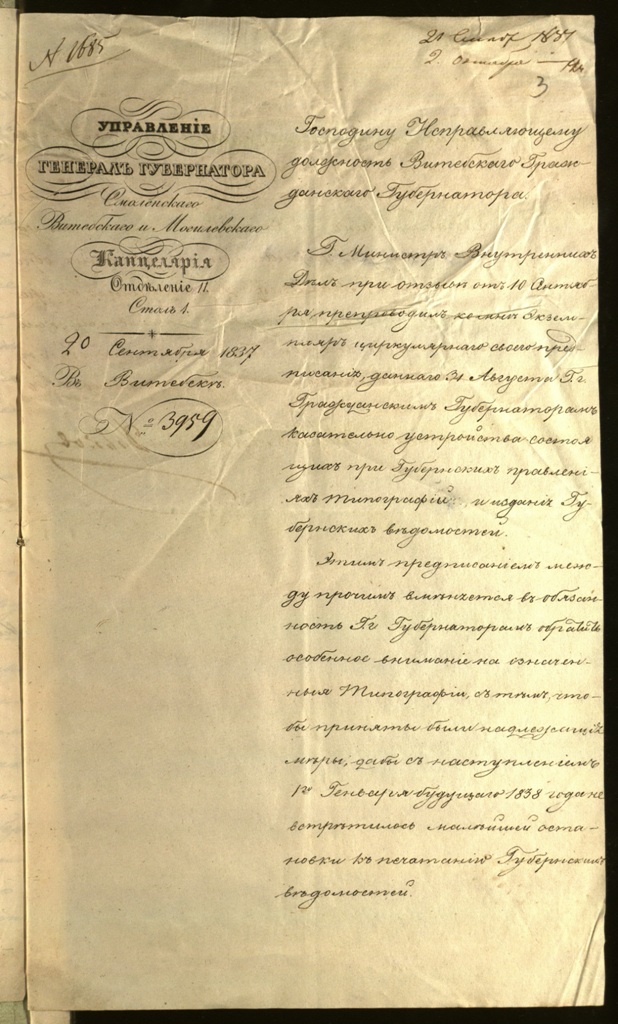 № 1685
21 Сентяб 1837
2. Октября
3
УПРАВЛЕНІЕ
ГЕНЕРАЛЪ ГУБЕРНАТОРА
Смоленскаго
Витебскаго и Могилевскаго
Канцелярія
Отдѣленіе II.
Столъ 1.
20 Сентября 1837
Въ Витебскѣ.
№ 3959
Господину Исправляющему
должность Витебскаго Граж-
данскаго Губернатора.
Г. Министръ Внутреннихъ
Дѣлъ при отзывѣ отъ 10 Сентяб-
ря препроводилъ ко мнѣ Экзем-
пляръ циркулярнаго своего пред-
писанія, даннаго 31 Августа Г.г.
Гражданскимъ Губернаторамъ
касательно устройства состоя
щихъ при Губернскихъ правлені-
яхъ типографій, и изданія Гу-
бернскихъ вѣдомостей.
Этимъ предписаніемъ меж-
ду прочимъ вмѣняется въ обязан-
ность Г.г Губернаторамъ обратить
особенное вниманіе на означен-
ныя Типографіи, съ тѣмъ, что-
бы приняты были надлежащія
мѣры, дабы съ наступленіемъ
1го Генваря будущаго 1838 года не
встрѣтилось малѣйшей оста-
новки къ печатанію Губернскихъ
вѣдомостей.